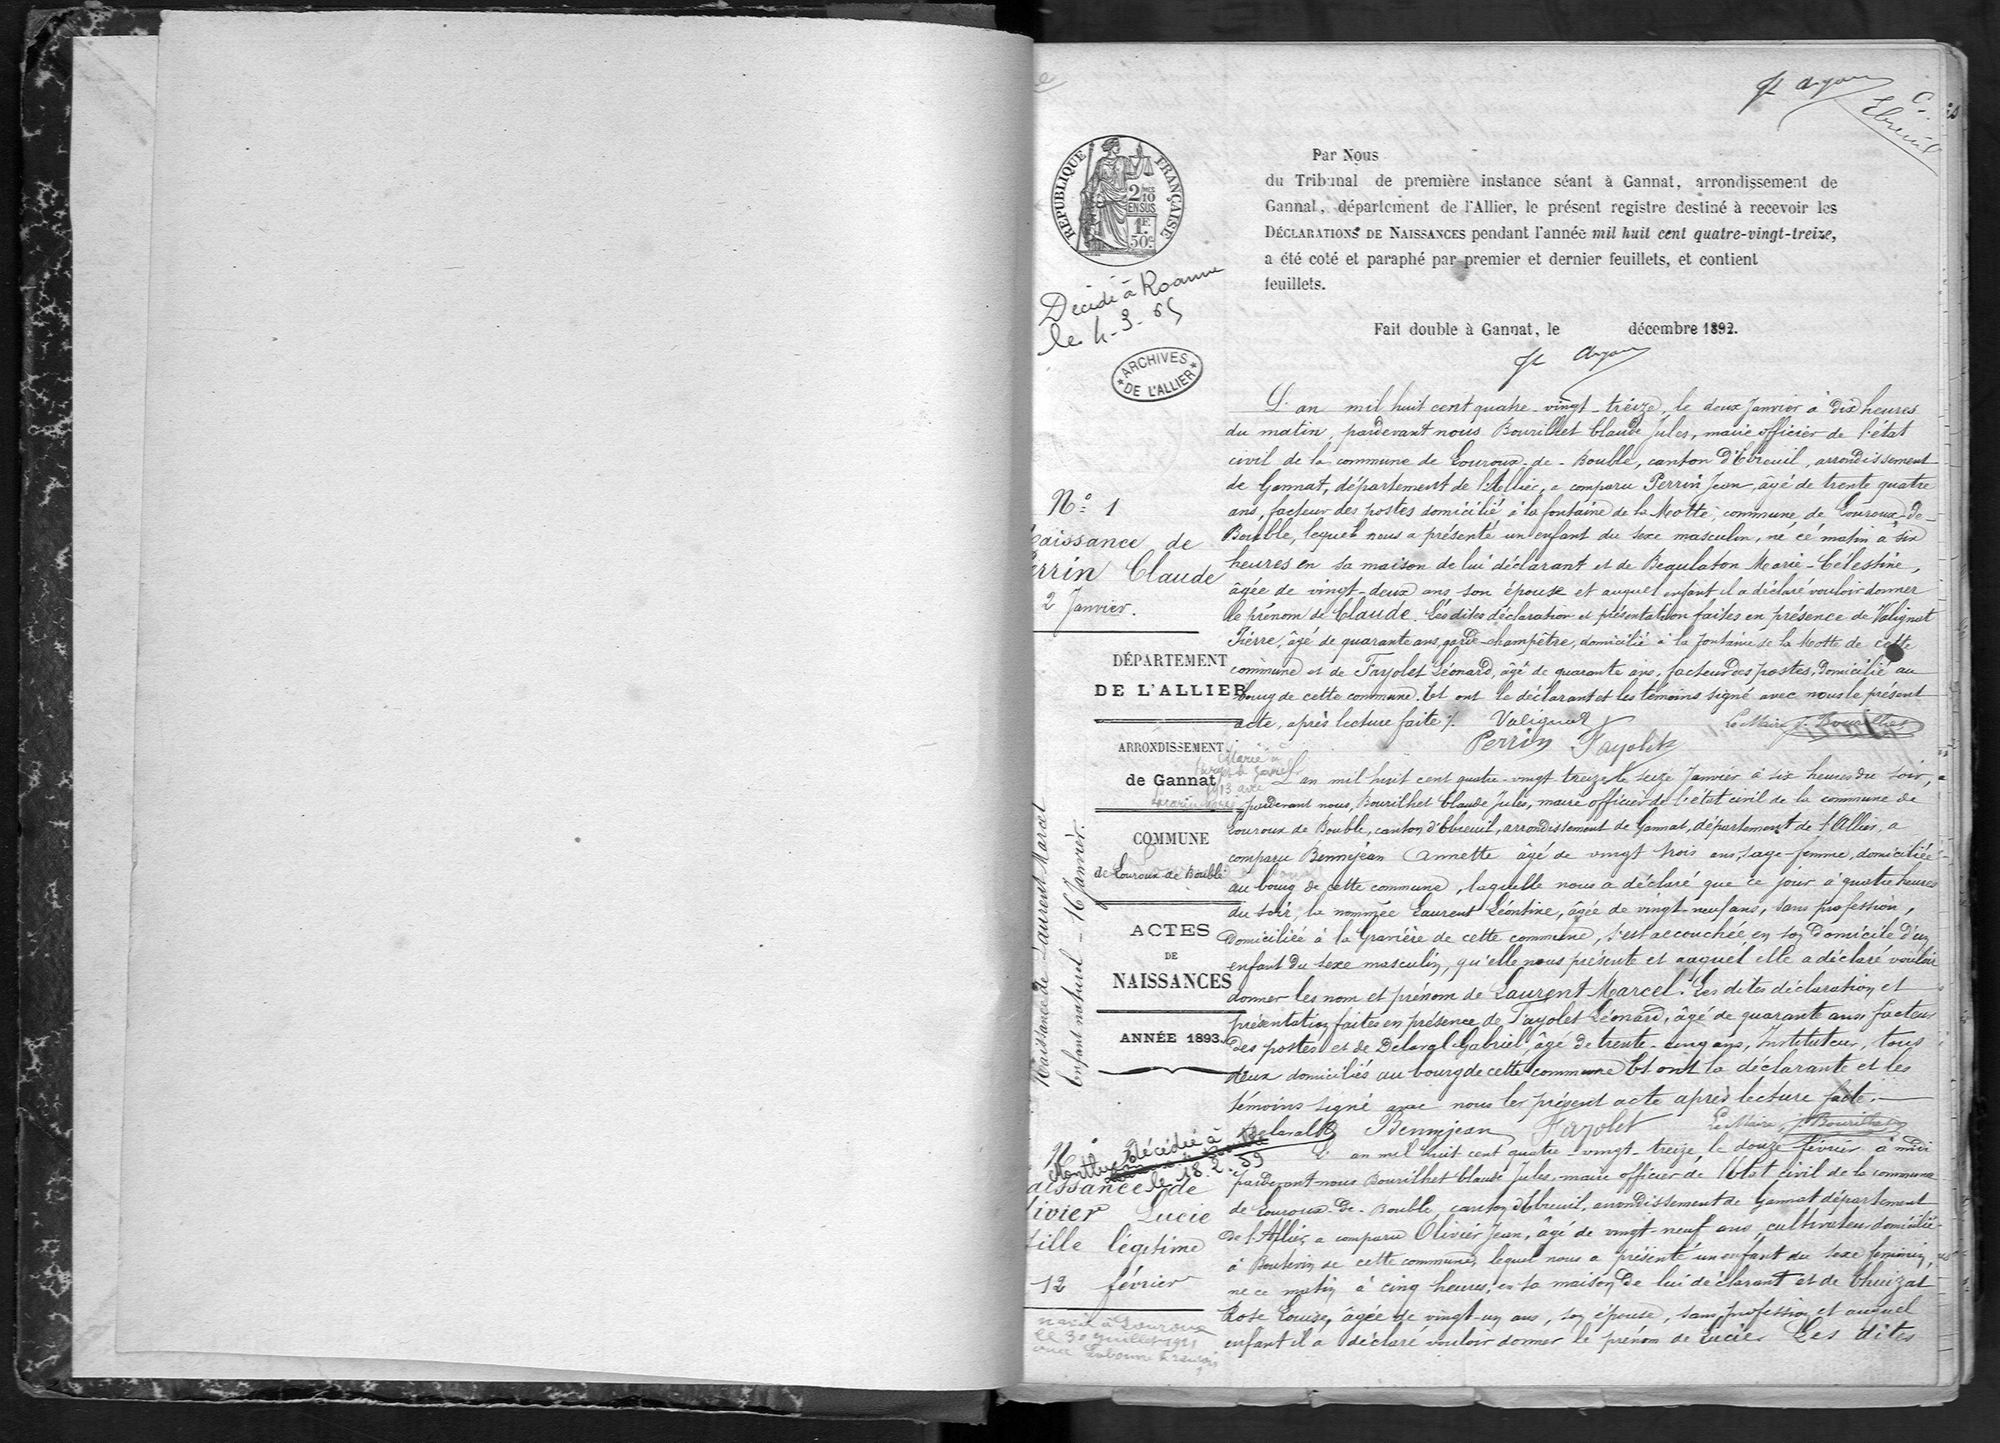 C.
Ebreuil
RÉPUBLIQUE FRANÇAISE
2 10
EN SUS
1F
50c
Par Nous
du Tribunal de première instance séant à Gannat, arrondissement de
Gannat, département de l'Allier, le présent registre destiné à recevoir les
DÉCLARATIONS DE NAISSANCES pendant l'année mil huit cent quatre-vingt-treize,
a été coté et paraphé par premier et dernier feuillets, et contient
feuillets.
Fait double à Gannat, le décembre 1892.
Décédé à Roanne
le 4-3-65
ARCHIVES
DE L'ALLIER
N° 1
aissance de
errin Claude
2 Janvier.
L'an mil huit cent quatre-vingt-treize, le deux Janvier à dix heures
du matin, pardevant nous Bourilhet Claude Jules, maire officier de l'état
civil de la commune de Louroux-de-Bouble, canton d'Ebreuil, arrondissement
de Gannat, département de l'Allier, a comparu Perrin Jean, âgé de trente quatre
ans, facteur des postes domicilié à la fontaine de la Motte, commune de Louroux-de-
Bouble, lequel nous a présenté un enfant du sexe masculin, né ce matin à six
heures en sa maison de lui déclarant et de Marie-Célestine,
âgée de vingt-deux ans son épouse et auquel enfant il a déclaré vouloir donner
le prénom de Claude. Les dites déclaration et présentation faites en présence de Valignat
Pierre, âgé de quarante ans, garde-champêtre, domicilié à la fontaine de la Motte de cette
commune et de Fayolet Léonard, âgé de quarante ans, facteur des postes, domicilié au
bourg de cette commune. Et ont le déclarant et les témoins signé avec nous le présent
acte, après lecture faite. Valignat Le Maire J. Bourilhet
Perrin Fayolet
DÉPARTEMENT
DE L'ALLIER
ARRONDISSEMENT
de Gannat
COMMUNE
de Louroux de Bouble
ACTES
DE
NAISSANCES
ANNÉE 1893.
Marié à
1913 avec
Naissance de Laurent Marcel
Enfant naturel - 16 Janvier.
L'an mil huit cent quatre-vingt treize le seize Janvier à six heures du soir,
pardevant nous, Bourilhet Claude Jules, maire officier de l'état civil de la commune de
Louroux de Bouble, canton d'Ebreuil, arrondissement de Gannat, département de l'Allier, a
comparu Bennejean Annette âgé de vingt trois ans, sage-femme, domiciliée
au bourg de cette commune, laquelle nous a déclaré que ce jour à quatre heures
du soir, la nommée Laurent Léontine, âgée de vingt-neuf ans, sans profession,
domiciliée à la Gravière de cette commune, s'est accouchée, en son domicile d'un
enfant du sexe masculin, qu'elle nous présente et auquel elle a déclaré vouloir
donner les nom et prénom de Laurent Marcel. Les dites déclaration et
présentation faites en présence de Fayolet Léonard, âgé de quarante ans, facteur
des postes et de Delaval Gabriel âgé de trente-cinq ans, Instituteur, tous
deux domiciliés au bourg de cette commune Et ont la déclarante et les
témoins signé avec nous le présent acte après lecture faite.
Delaval Bennejean Fayolet Le Maire, J. Bourilhet
N°
Décédée à
le 18.2.59
aissance de
livier Lucie
fille légitime
12 février
L'an mil huit cent quatre-vingt-treize, le douze février à midi
pardevant nous Bourilhet Claude Jules, maire officier de l'état civil de la commune
de Louroux-de-Bouble, canton d'Ebreuil, arrondissement de Gannat département
de l'Allier, a comparu Olivier Jean, âgé de vingt-neuf ans, cultivateur domicilié
à de cette commune, lequel nous a présenté un enfant du sexe féminin,
né ce matin à cinq heures, en sa maison de lui déclarant et de Chuizat
Rose Louise, âgée de vingt-un ans, son épouse, sans profession et auquel
enfant il a déclaré vouloir donner le prénom de Lucie. Les dites
à Louroux
le 30 juillet 1921
avec